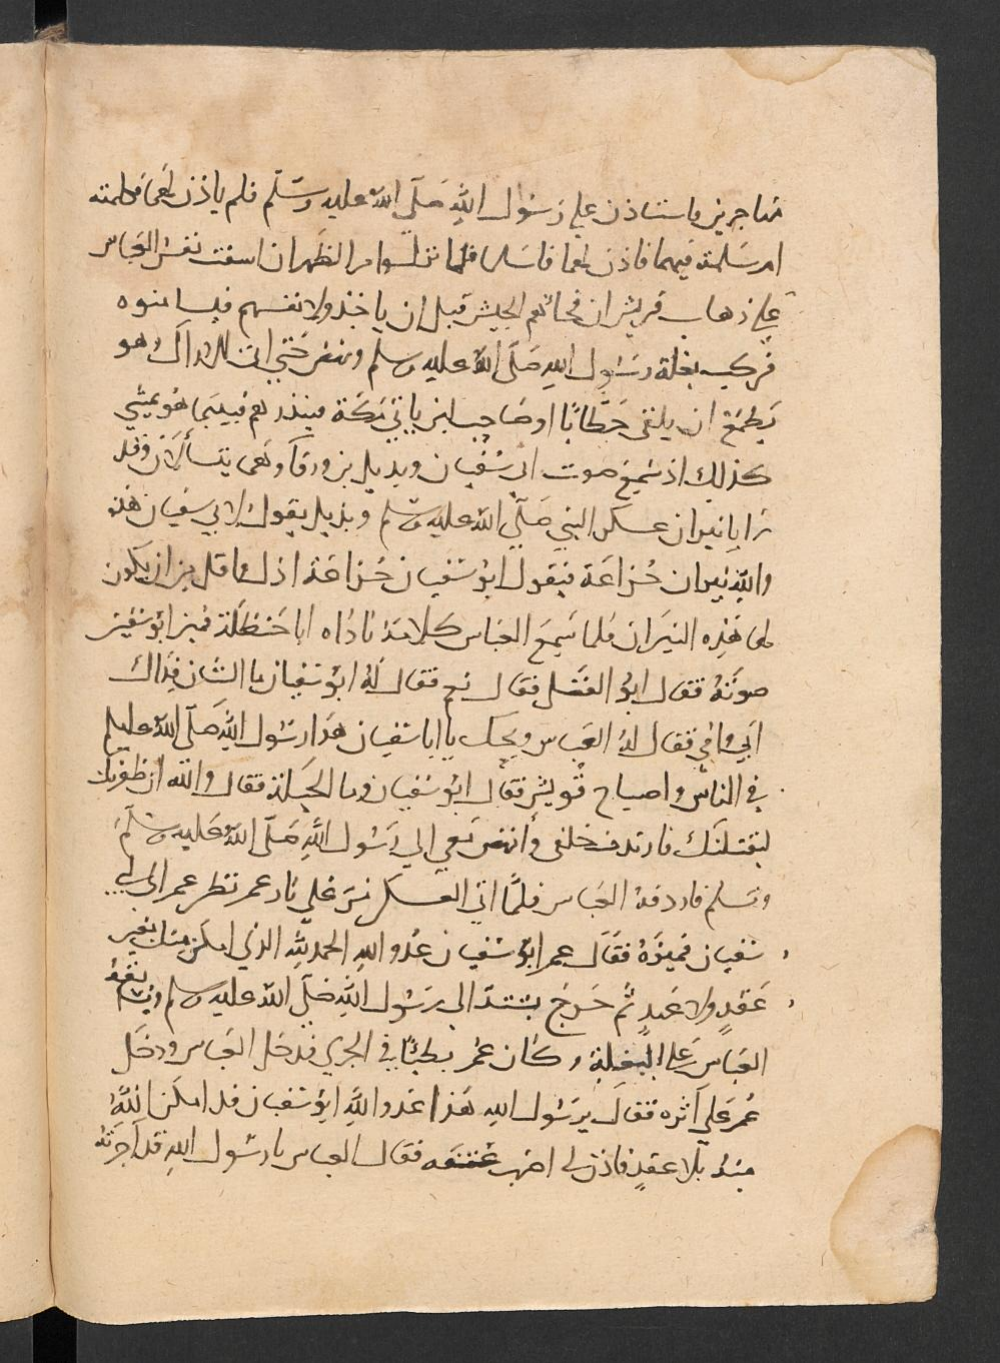 مهاجرين فاستاذن علي رسول الله صلي الله عليه وسلم فلم ياذن لهما فكلمته
ام سلمة فيهما فاذن لهما فاسلما فلما نزلوا مر الظهران اسفت نفس العباس
علي ذهاب قريش ان فجائهم الجيش قبل ان ياخذوا لانفسهم فيسامنوه
فركب بغلة رسول الله صلي الله عليه وسلم ونهض حتي اتي الاراك وهو
يطمع ان يلقي حطابا او صاحب لبن ياتي مكة فينذرهم فبينما هو يمشي
كذلك اذ سمع صوت ابي سفيان وبديل بن ورقا وهما يتسألان وقد
رايا نيران عسكر النبي صلي الله عليه وسلم وبديل يقول لابي سفيان هذه
والله نيران خزاعة فيقول ابو سفيان خزاعة اذل واقل من ان يكون
لها هذه النيران فلما سمع العباس كلامه ناداه ابا حنظلة فميز ابو سفين
صوته فقال ابو الفضل فقال نعم فقال له ابو سفيان ما الشان فداك
ابي وامي فقال له العباس ويحك يا ابا سفيان هذا رسول الله صلي الله عليه وسلم
في الناس واصياح قريش فقال ابو سفيان وما الحيلة فقال والله ان ظفر بك
ليقتلنك فارتدف خلفي وانهض معي الي رسول الله صلي الله عليه وسلم
وتسلم فاردفه العباس فلما اتي العسكر مر علي نار عمر نظر عمر الي ابي
سفيان فميزه فقال عمر ابو سفيان عدو الله الحمد لله الذي امكن منك بغير
عقد ولا عهد ثم خرج يشتد الي رسول الله صلي الله عليه وسلم
العباس علي البغلة وكان عمر بطيئا في الجري فدخل العباس ودخل
عمر علي اثره فقال يرسول الله هذا عدو الله ابو سفيان قد امكن الله
منه بلا عقد فاذن لي اضرب عنقه فقال العباس يا رسول الله قد اجرته